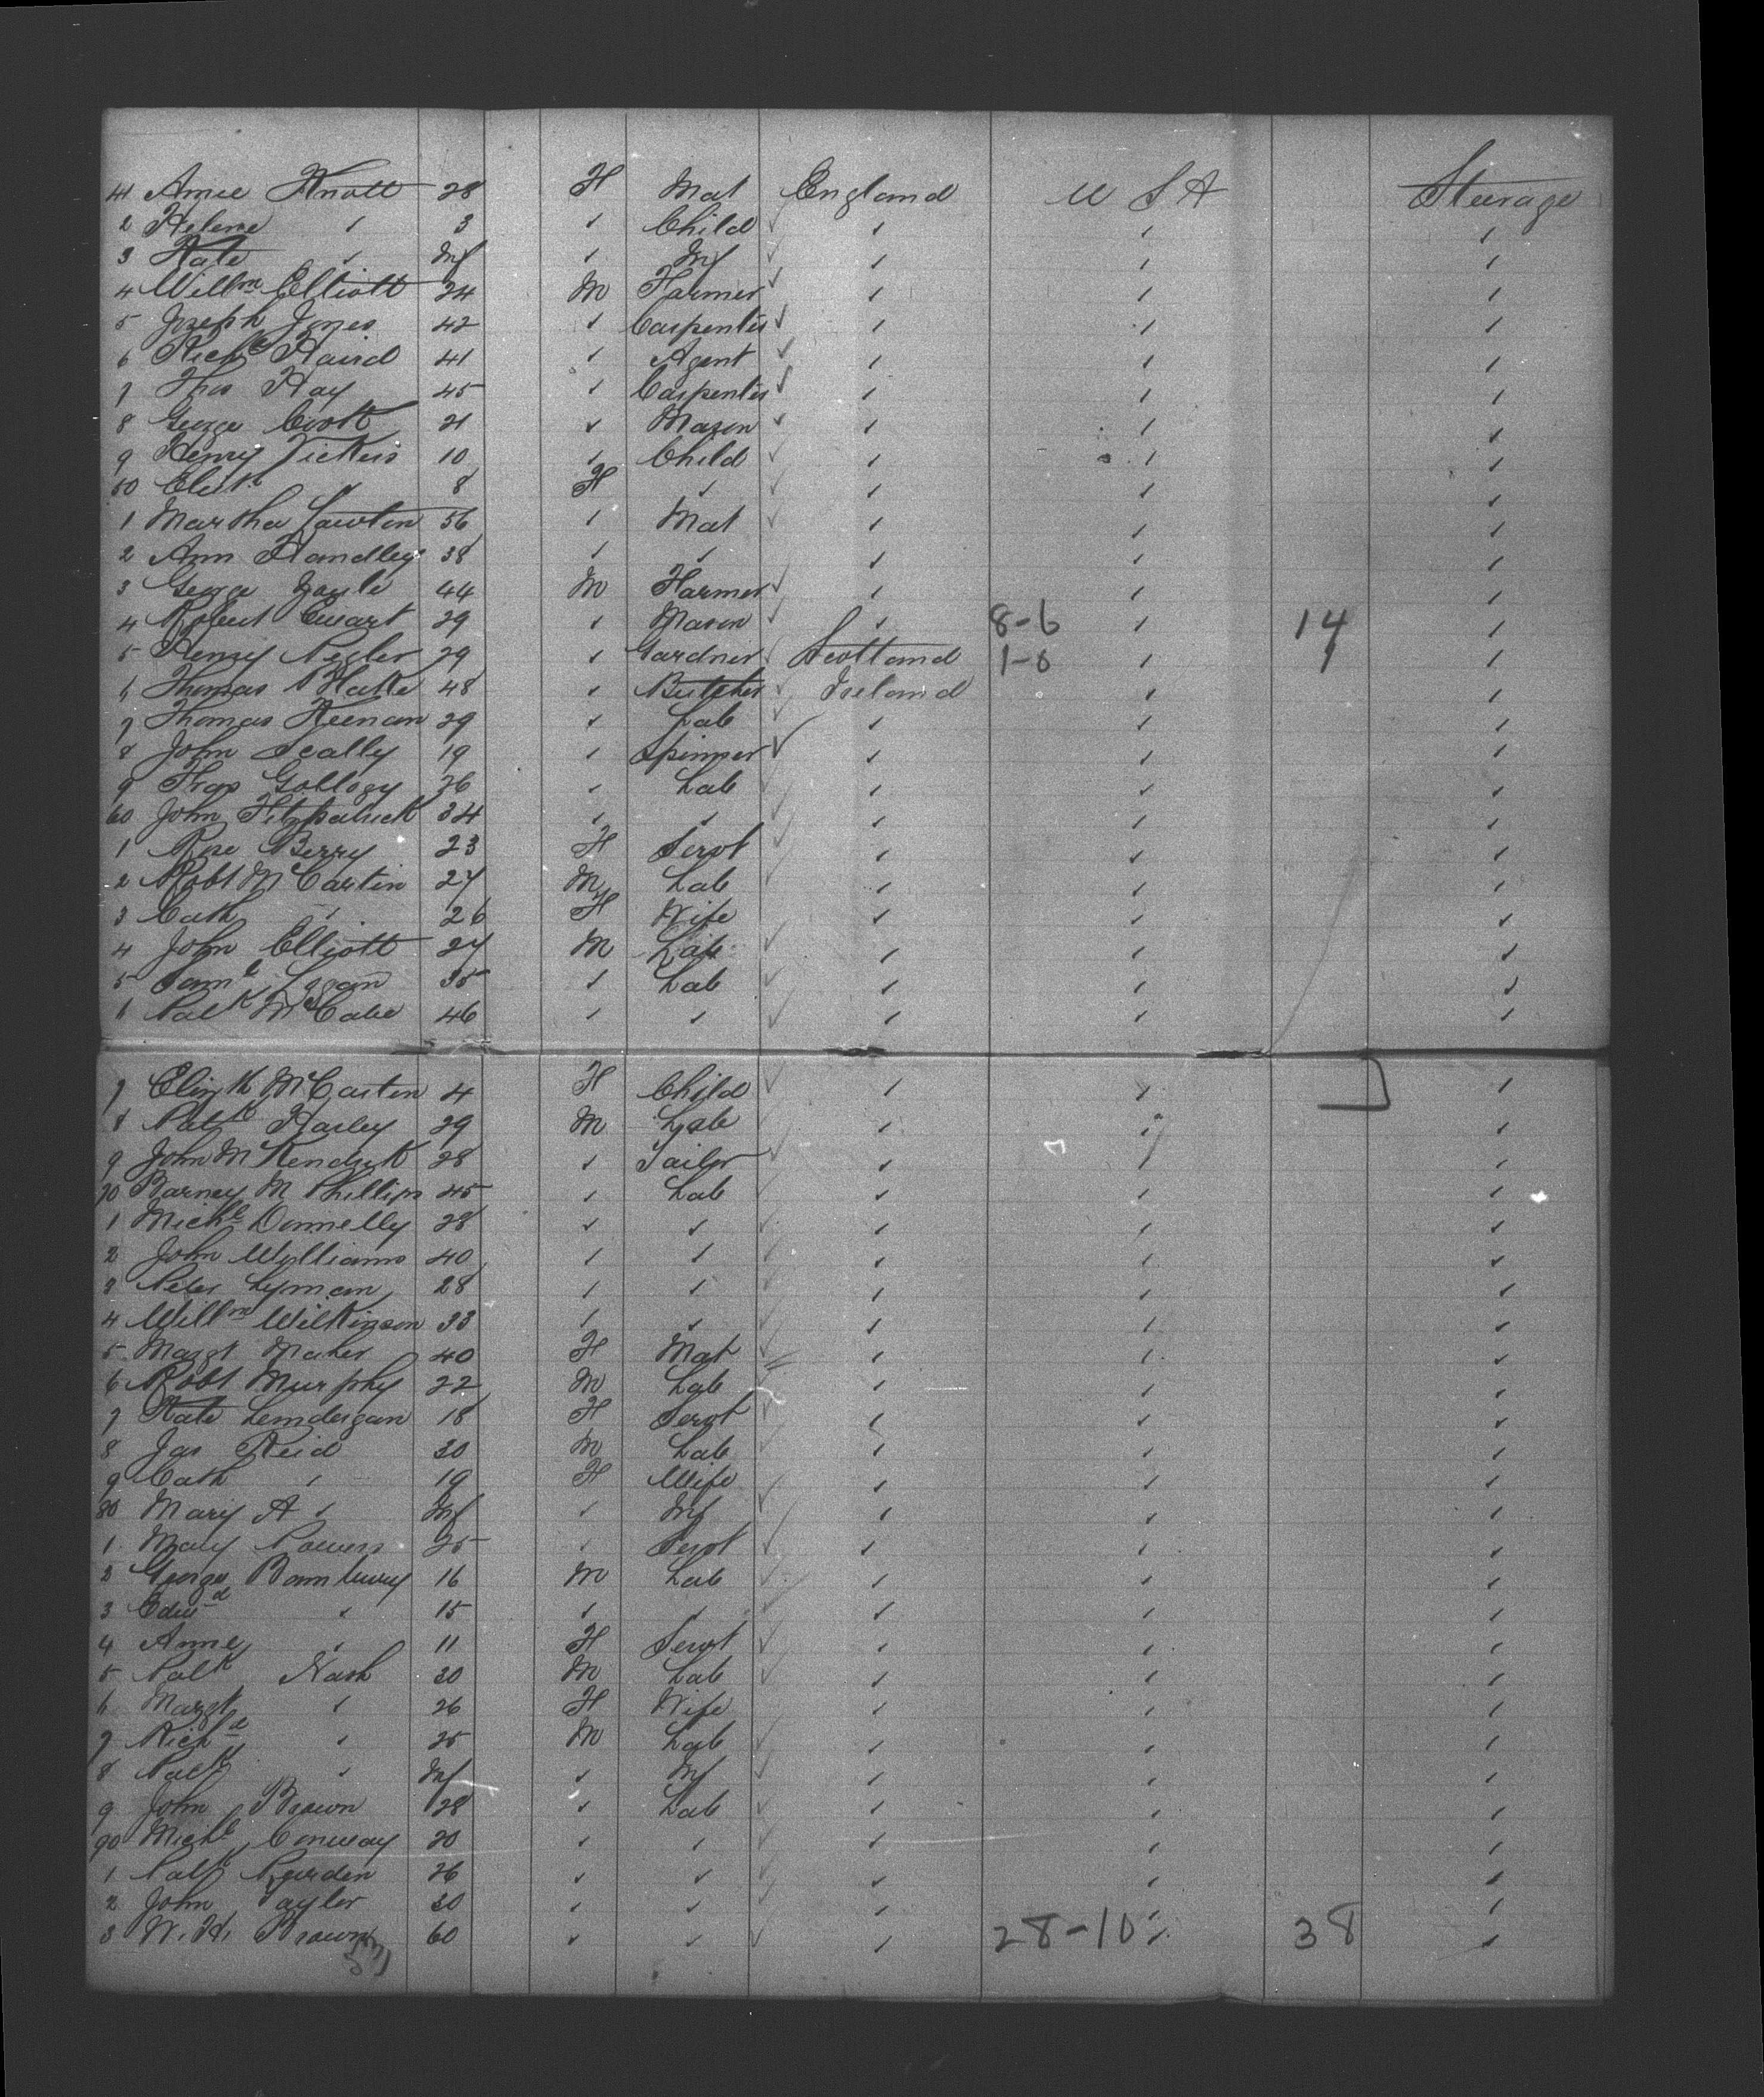 41 Annie Knott 28 F Mat England U S A Steerage
2 Helene " 3 " Child " " "
3 Kate " Inf " Inf " " "
4 Willm Elliott 24 M Farmer " " "
5 Joseph Jones 42 " Carpenter " " "
6 Richd Haird 41 " Agent " " "
7 Thos Hay 45 " Carpenter " " "
8 George Cook 21 " Mason " " "
9 Henry Vickers 10 " Child " " "
50 " 8 F " " " "
1 Martha Lawton 56 " Mat " " "
2 Ann Handley 38 " " " " "
3 George 44 M Farmer " " "
4 Robert Ewart 29 " Mason " 8-6 " 14 "
5 Henry 29 " Gardner Scotland 1-0 " 1 "
6 Thomas 48 " Butcher Ireland " "
7 Thomas Keenan 29 " Lab " " "
8 John Scally 19 " Spinner " " "
9 Thos Gollogy 36 " Lab " " "
60 John Fitzpatrick 34 " " " " "
1 Rose Berry 23 F Servt " " "
2 Robt McCartin 27 M Lab " " "
3 Cath " 26 F Wife " " "
4 John Elliott 27 M Lab " " "
5 Saml Logan 35 " Lab " " "
6 Patk McCabe 46 " " " " "
7 Elizth McCartin 4 F Child " " "
8 Patk Harley 29 M Lab " " "
9 John McKendrick 28 " Tailor " " "
70 Barney M Phillips 45 " Lab " " "
1 Michl Donnelly 28 " " " " "
2 John Williams 40 " " " " "
3 Peter Lyman 28 " " " " "
4 Willm Wilkinson 33 " " " " "
5 Margt Maher 40 F Mat " " "
6 Robt Murphy 22 M Lab " " "
7 Kate Lendergan 18 F Servt " " "
8 Jas Reid 30 M Lab " " "
9 Cath " 19 F Wife " " "
80 Mary A " Inf " Inf " " "
1 Mary Powers 25 " Servt " " "
2 George Bambury 16 M Lab " " "
3 Edwd " 15 " " " " "
4 Anne " 11 F Servt " " "
5 Patk Nash 30 M Lab " " "
6 Margt " 26 F Wife " " "
7 Richd " 25 M Lab " " "
8 Patk " Inf " Inf " " "
9 John Brown 28 " Lab " " "
90 Michl Conway 20 " " " " "
1 Patk Reardon 26 " " " " "
2 John Tayler 30 " " " " "
3 W. H. Brown 60 " " " 28-10 " 38 "